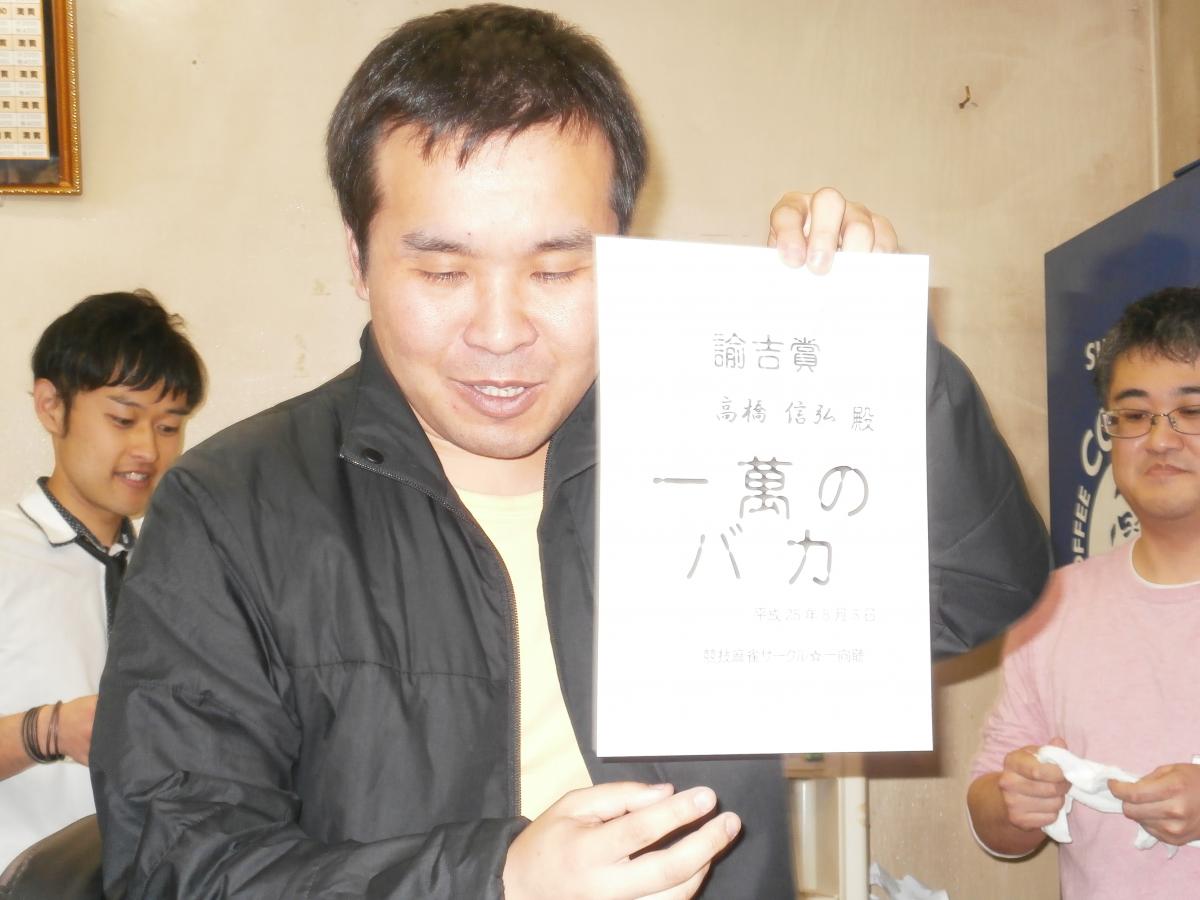 諭吉賞
高橋 信弘 殿
一萬の
バカ
平成25年5月3日
競技麻雀サークル☆一向聴
COFFEE